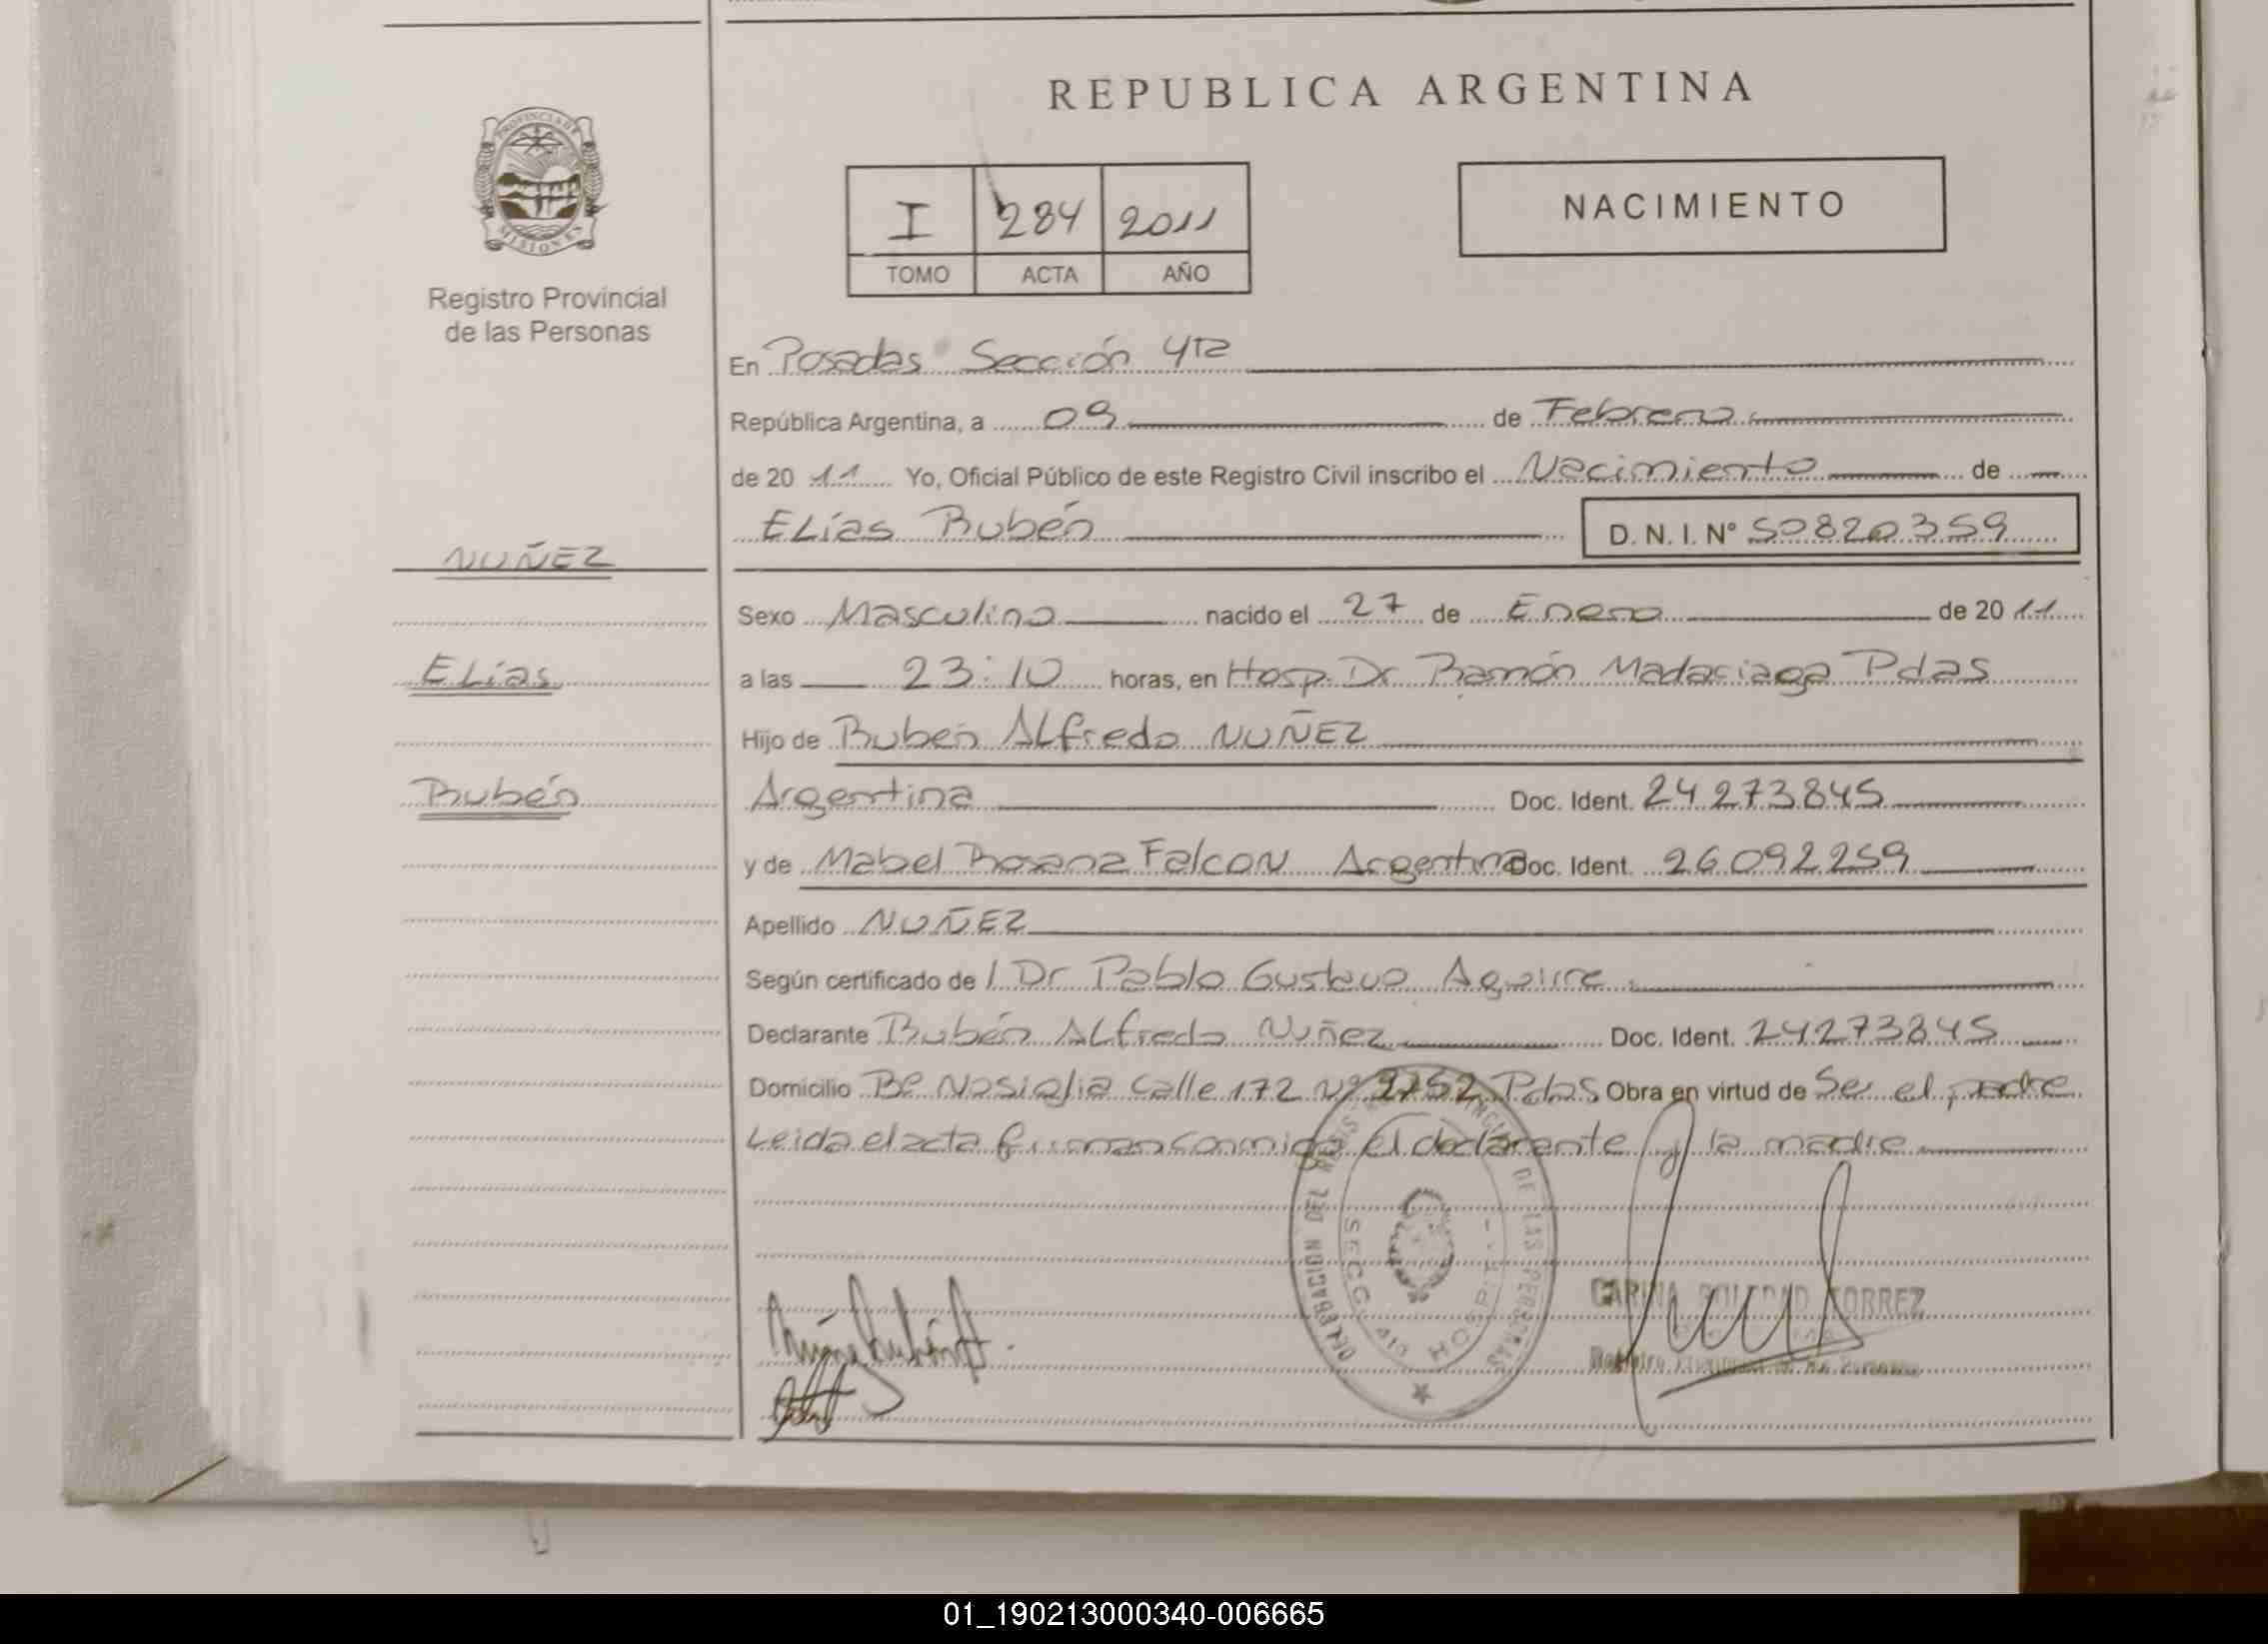 REPUBLICA ARGENTINA
PROVINCIA DE
MISIONES
Registro Provincial
de las Personas
I 284 2011
TOMO ACTA AÑO
NACIMIENTO
En Posadas Sección 4ta
República Argentina, a 09 de Febrero
de 20 11 Yo, Oficial Público de este Registro Civil inscribo el Nacimiento de
Elías Rubén D. N. I. Nº 50820359
NUÑEZ
Elías
Rubén
Sexo Masculino nacido el 27 de Enero de 20 11
a las 23:10 horas, en Hosp. Dr Ramón Madariaga Pdas
Hijo de Ruben Alfredo NUÑEZ
Argentina Doc. Ident. 24273845
y de Mabel Rosana Falcon Argentina Doc. Ident. 26.092.259
Apellido NUÑEZ
Según certificado de l Dr Pablo Gustavo Aguirre
Declarante Rubén Alfredo Nuñez Doc. Ident. 24273845
Domicilio Bº Nosiglia calle 172 Nº 2752 Pdas Obra en virtud de Ser el padre
Leida el acta firman conmigo el declarante y la madre
DELEGACION DEL REGISTRO PROVINCIAL DE LAS PERSONAS
CARINA SOLEDAD TORREZ
01_190213000340-006665